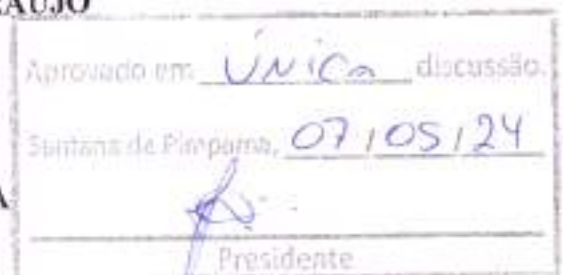 RAUJO
Aprovado em ÚNICA discussão.
Santana de Pirapama, 07/05/24
A
Presidente